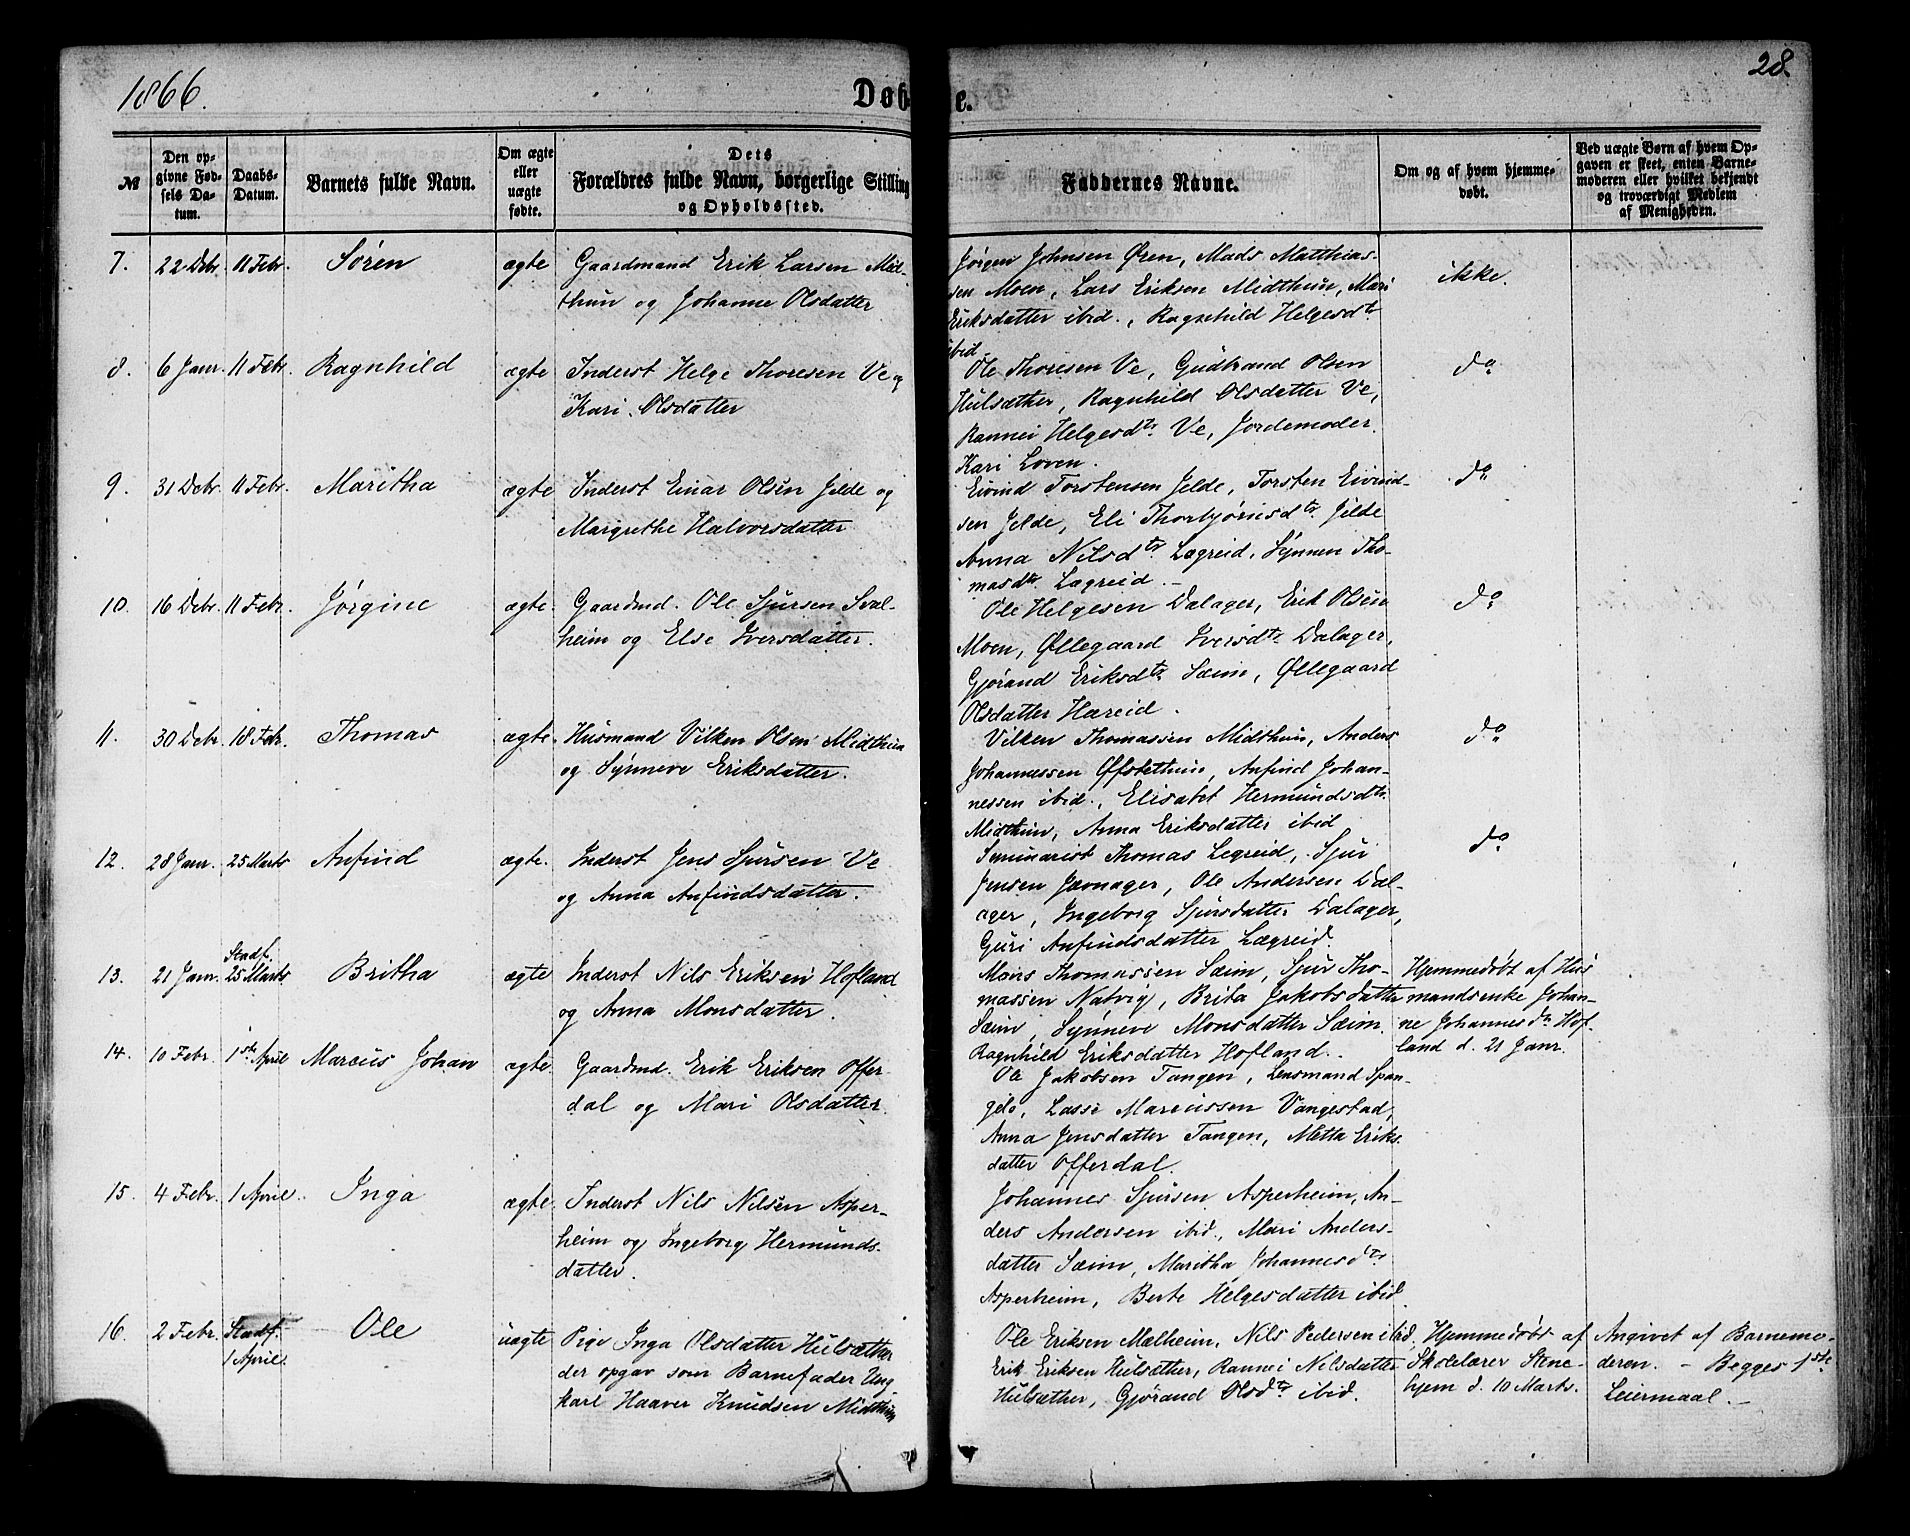 1866.
Døb
e.
28.
№
Den opgivne Fødsels Datum.
Daabs-Datum.
Barnets fulde Navn.
Om ægte eller uægte fødte.
Dets Forældres fulde Navn, borgerlige Stilling og Opholdssted.
Faddernes Navne.
Om og af hvem hjemmedøbt.
Ved uægte Børn af hvem Opgaven er skeet, enten Barnemoderen eller hvilket bekjendt og troværdigt Medlem af Menigheden.
7. 22 Debr. 11 Febr. Søren ægte Gaardmand Erik Larsen Mid-
thun og Johanne Olsdatter
Jørgen Johnsen Øren, Mads Matthias-
sen Moen, Lars Eriksen Midthun, Mari
Eriksdatter ibid., Ragnhild Helgesdtr
ibid
ikke.
8. 6 Janr. 11 Febr. Ragnhild ægte Inderst Helge Thoresen Ve og
Kari Olsdatter
Ole Thoresen Ve, Gudbrand Olsen
Hulsæther, Ragnhild Olsdatter Ve,
Rannei Helgesdtr Ve, Jordemoder
Kari Loven.
do
9. 31 Debr. 11 Febr. Maritha ægte Inderst Einar Olsen Jelde og
Margrethe Halvorsdatter
Eivind Torstensen Jelde, Torsten Eivind-
sen Jelde, Eli Thorbjørnsdtr Jelde
Anna Nilsdtr Lægreid, Synnev Tho-
masdtr Lægreid.
do
10. 16 Debr. 11 Febr. Jørgine ægte Gaardmd. Ole Sjursen Sval-
heim og Else Iversdatter.
Ole Helgesen Dalager, Erik Olsen
Moen, Øllegaard Iversdtr Dalager,
Gjørand Eriksdtr Sæim, Øllegaard
Olsdatter Hæreid.
do
11. 30 Debr. 18 Febr. Thomas ægte Husmand Vilken Olsen Midthun
og Synneve Eriksdatter.
Vilken Thomassen Midthun, Anders
Johannessen Øfstethun, Anfind Johan-
nessen ibid., Elisabet Hermundsdtr
Midthun, Anna Eriksdatter ibid
do
12. 28 Janr. 25 Marts Anfind ægte. Inderst Jens Sjursen Ve
og Anna Anfindsdatter.
Seminarist Thomas Legreid, Sjur
Jensen Jævnager, Ole Andersen Dal-
ager, Ingeborg Sjursdatter Dalager,
Guri Anfindsdatter Lægreid.
do
13. 21 Janr. Stadf. 25 Marts Britha ægte Inderst Nils Eriksen Hofland
og Anna Monsdatter.
Mons Thomassen Sæim, Sjur Tho-
massen Natvig, Brita Jakobsdatter
Sæim, Synneve Monsdatter Sæim
Ragnhild Eriksdatter Hofland.
Hjemmedøbt af Hus
mandsenke Johan-
ne Johannesdtr Hof-
land d. 21 Janr.
14. 10 Febr. 1ste April Marcus Johan ægte. Gaardmd. Erik Eriksen Offer-
dal og Mari Olsdatter.
Ole Jakobsen Tangen, Lensmand Span-
gelo, Lasse Marcussen Vangestad,
Anna Jensdatter Tangen, Metta Eriks
datter Offerdal.
15. 4 Febr. 1 April. Inga ægte. Inderst Nils Nilsen Asper-
heim og Ingeborg Hermunds-
datter.
Johannes Sjursen Asperheim, An-
ders Andersen ibid., Mari Anders-
datter Sæim, Maritha Johannesdtr
Asperheim, Berte Helgesdatter ibid.
16. 2 Febr. Stadf. 1 April. Ole uægte Pige Inga Olsdatter Hulsæther
der opgav som Barnefader Ung
karl Haaver Knudsen Midthun
Ole Eriksen Mælheim, Nils Pedersen ibid,
Erik Eriksen Hulsæther, Rannei Nilsdatter
Hulsæther, Gjørand Olsdtr ibid.
Hjemmedøbt af
Skolelærer Stene-
hjem d. 10 Marts.
Angivet af Barnemo-
deren. – Begges 1ste
Leiermaal. –